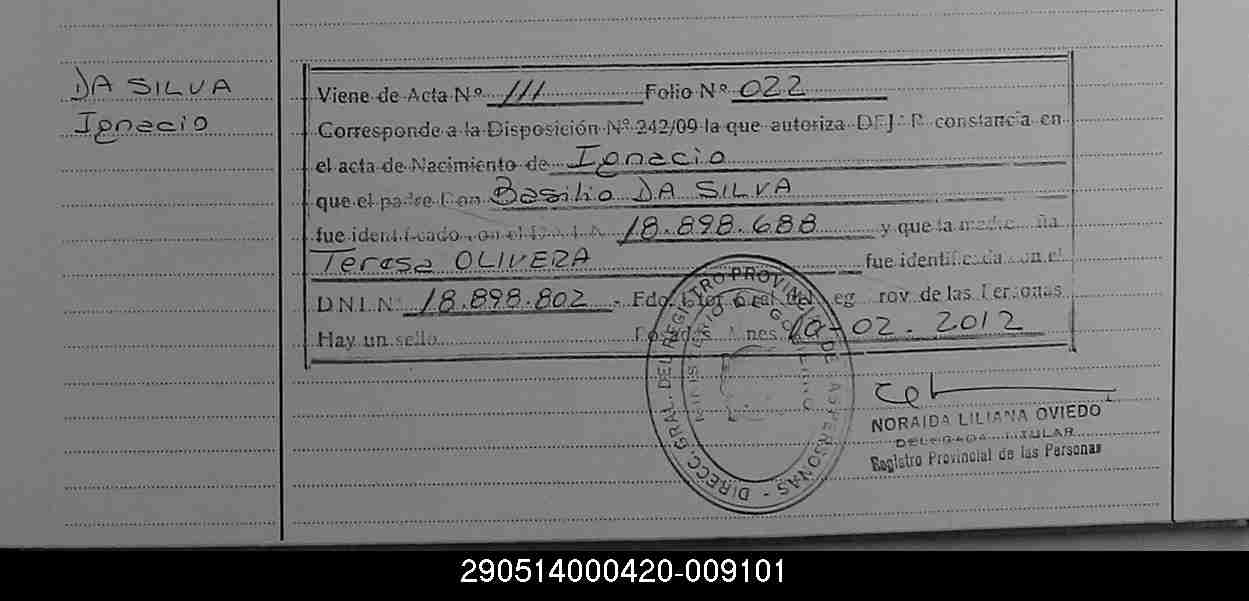 DA SILVA
Ignacio
Viene de Acta Nº 111 Folio Nº 022
Corresponde a la Disposición Nº 242/09 la que autoriza DEJAR constancia en
el acta de Nacimiento de Ignacio
que el padre Don Basilio DA SILVA
fue identificado con el D.N.I. N 18.898.688 y que la madre ña
Teresa OLIVERA fue identificada con el
DNI. Nº 18.898.802 - Fdo. Gral. del Reg Prov. de las Personas
Hay un sello Posadas Mnes 10-02.2012
DIRECC. GRAL. DEL REGISTRO PROVINCIAL DE LAS PERSONAS
MINISTERIO DE GOBIERNO
NORAIDA LILIANA OVIEDO
DELEGADA TITULAR
Registro Provincial de las Personas
290514000420-009101